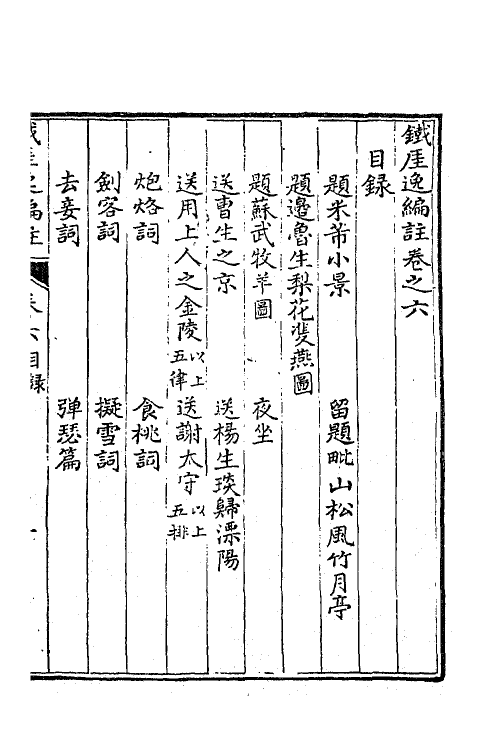 鐵厓逸編註卷之六
目録
題米芾小景　留題毗山松風竹月亭
題邊魯生梨花雙燕圖
題蘇武牧羊圖　夜坐
送曹生之京　送楊生琰歸溧陽
送用上人之金陵以上五律　送謝太守以上五排
炮烙詞　食桃詞
劍客詞　擬雪詞
去妾詞　彈瑟篇
鐵厓逸編註　卷六目録　一